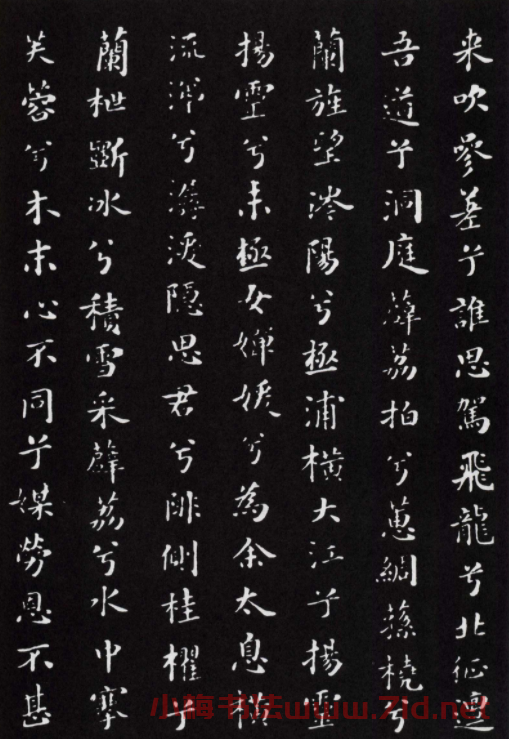 来吹參差兮誰思駕飛龍兮北征邅
吾道兮洞庭薜荔拍兮蕙綢蓀橈兮
蘭旌望涔陽兮極浦橫大江兮揚靈
揚靈兮未極女嬋媛兮為余太息橫
流涕兮潺湲隠思君兮陫側桂櫂兮
蘭枻斲冰兮積雪采薜荔兮水中搴
芙蓉兮木末心不同兮媒勞恩不甚
小梅书法www.7id.net